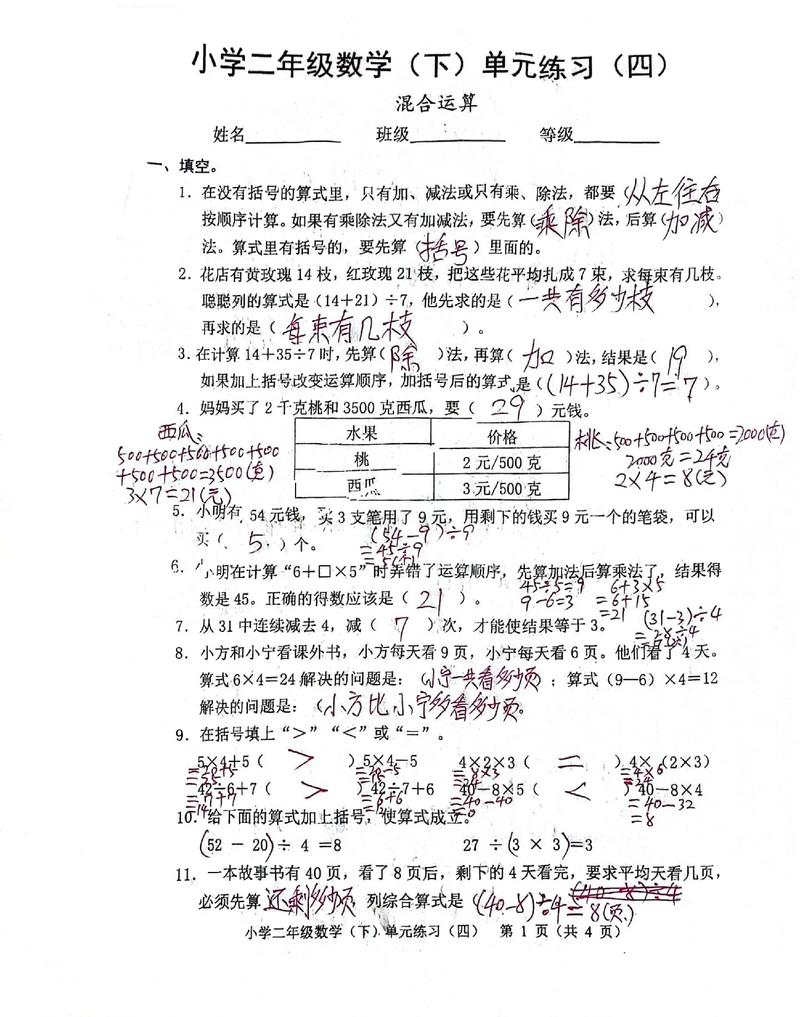 小学二年级数学（下）单元练习（四）
混合运算
姓名 班级 等级
一、填空。
1．在没有括号的算式里，只有加、减法或只有乘、除法，都要（从左往右
按顺序计算。如果有乘除法又有加减法，要先算（乘除）法，后算（加减）
法。算式里有括号的，要先算（括号）里面的。
2．花店有黄玫瑰 14 枝，红玫瑰 21 枝，把这些花平均扎成 7 束，求每束有几枝。
聪聪列的算式是（14＋21）÷7，他先求的是（一共有多少枝），
再求的是（每束有几枝）。
3．在计算 14＋35÷7 时，先算（除）法，再算（加）法，结果是（19），
如果加上括号改变运算顺序，加括号后的算式是（(14+35)÷7=7）。
4．妈妈买了 2 千克桃和 3500 克西瓜，要（29）元钱。
西瓜：
500+500+500+500+500
+500+500=3500(克)
3×7=21(元)
水果 价格
桃 2 元/500 克
西瓜 3 元/500 克
桃：500+500+500+500=2000(克)
2000克=2千克
2×4=8(元)
5．小明有 54 元钱，买 3 支笔用了 9 元，用剩下的钱买 9 元一个的笔袋，可以
买（5）个。
(54-9)÷9
=45÷9
=5(个)
6．小明在计算“6＋□×5”时弄错了运算顺序，先算加法后算乘法了，结果得
数是 45。正确的得数应该是（21）。
45÷5=9
9-6=3
6+3×5
=6+15
=21
7．从 31 中连续减去 4，减（7）次，才能使结果等于 3。
(31-3)÷4
=28÷4
8．小方和小宁看课外书，小方每天看 9 页，小宁每天看 6 页。他们看了 4 天。
算式 6×4＝24 解决的问题是：（小宁一共看多少页；算式（9—6）×4＝12
解决的问题是：（小方比小宁多看多少页。
9．在括号填上“＞”“＜”或“＝”。
5×4+5（＞）5×4−5 4×2×3（＝）4×（2×3）
=20-5 =8×3 =4×6
42÷6+7（＞）42÷7+6 40−8×5（＜）40−8×4
=7+7 =6+6 =40-40 =40-32
=14 =12 =0 =8
10．给下面的算式加上括号，使算式成立。
(52 − 20)÷ 4 =8 27 ÷(3 × 3)=3
11．一本故事书有 40 页，看了 8 页后，剩下的 4 天看完，要求平均天看几页，
必须先算还剩多少页，列综合算式是(40-8)÷4=8(页)
小学二年级数学（下）单元练习（四） 第 1 页（共 4 页）